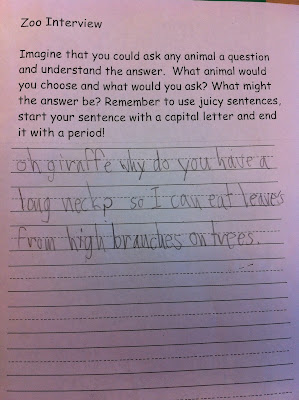 Zoo Interview
Imagine that you could ask any animal a question
and understand the answer. What animal would
you choose and what would you ask? What might
the answer be? Remember to use juicy sentences,
start your sentence with a capital letter and end
it with a period!
oh giraffe why do you have a
long neckp so I can eat leaves
from high branches on trees.